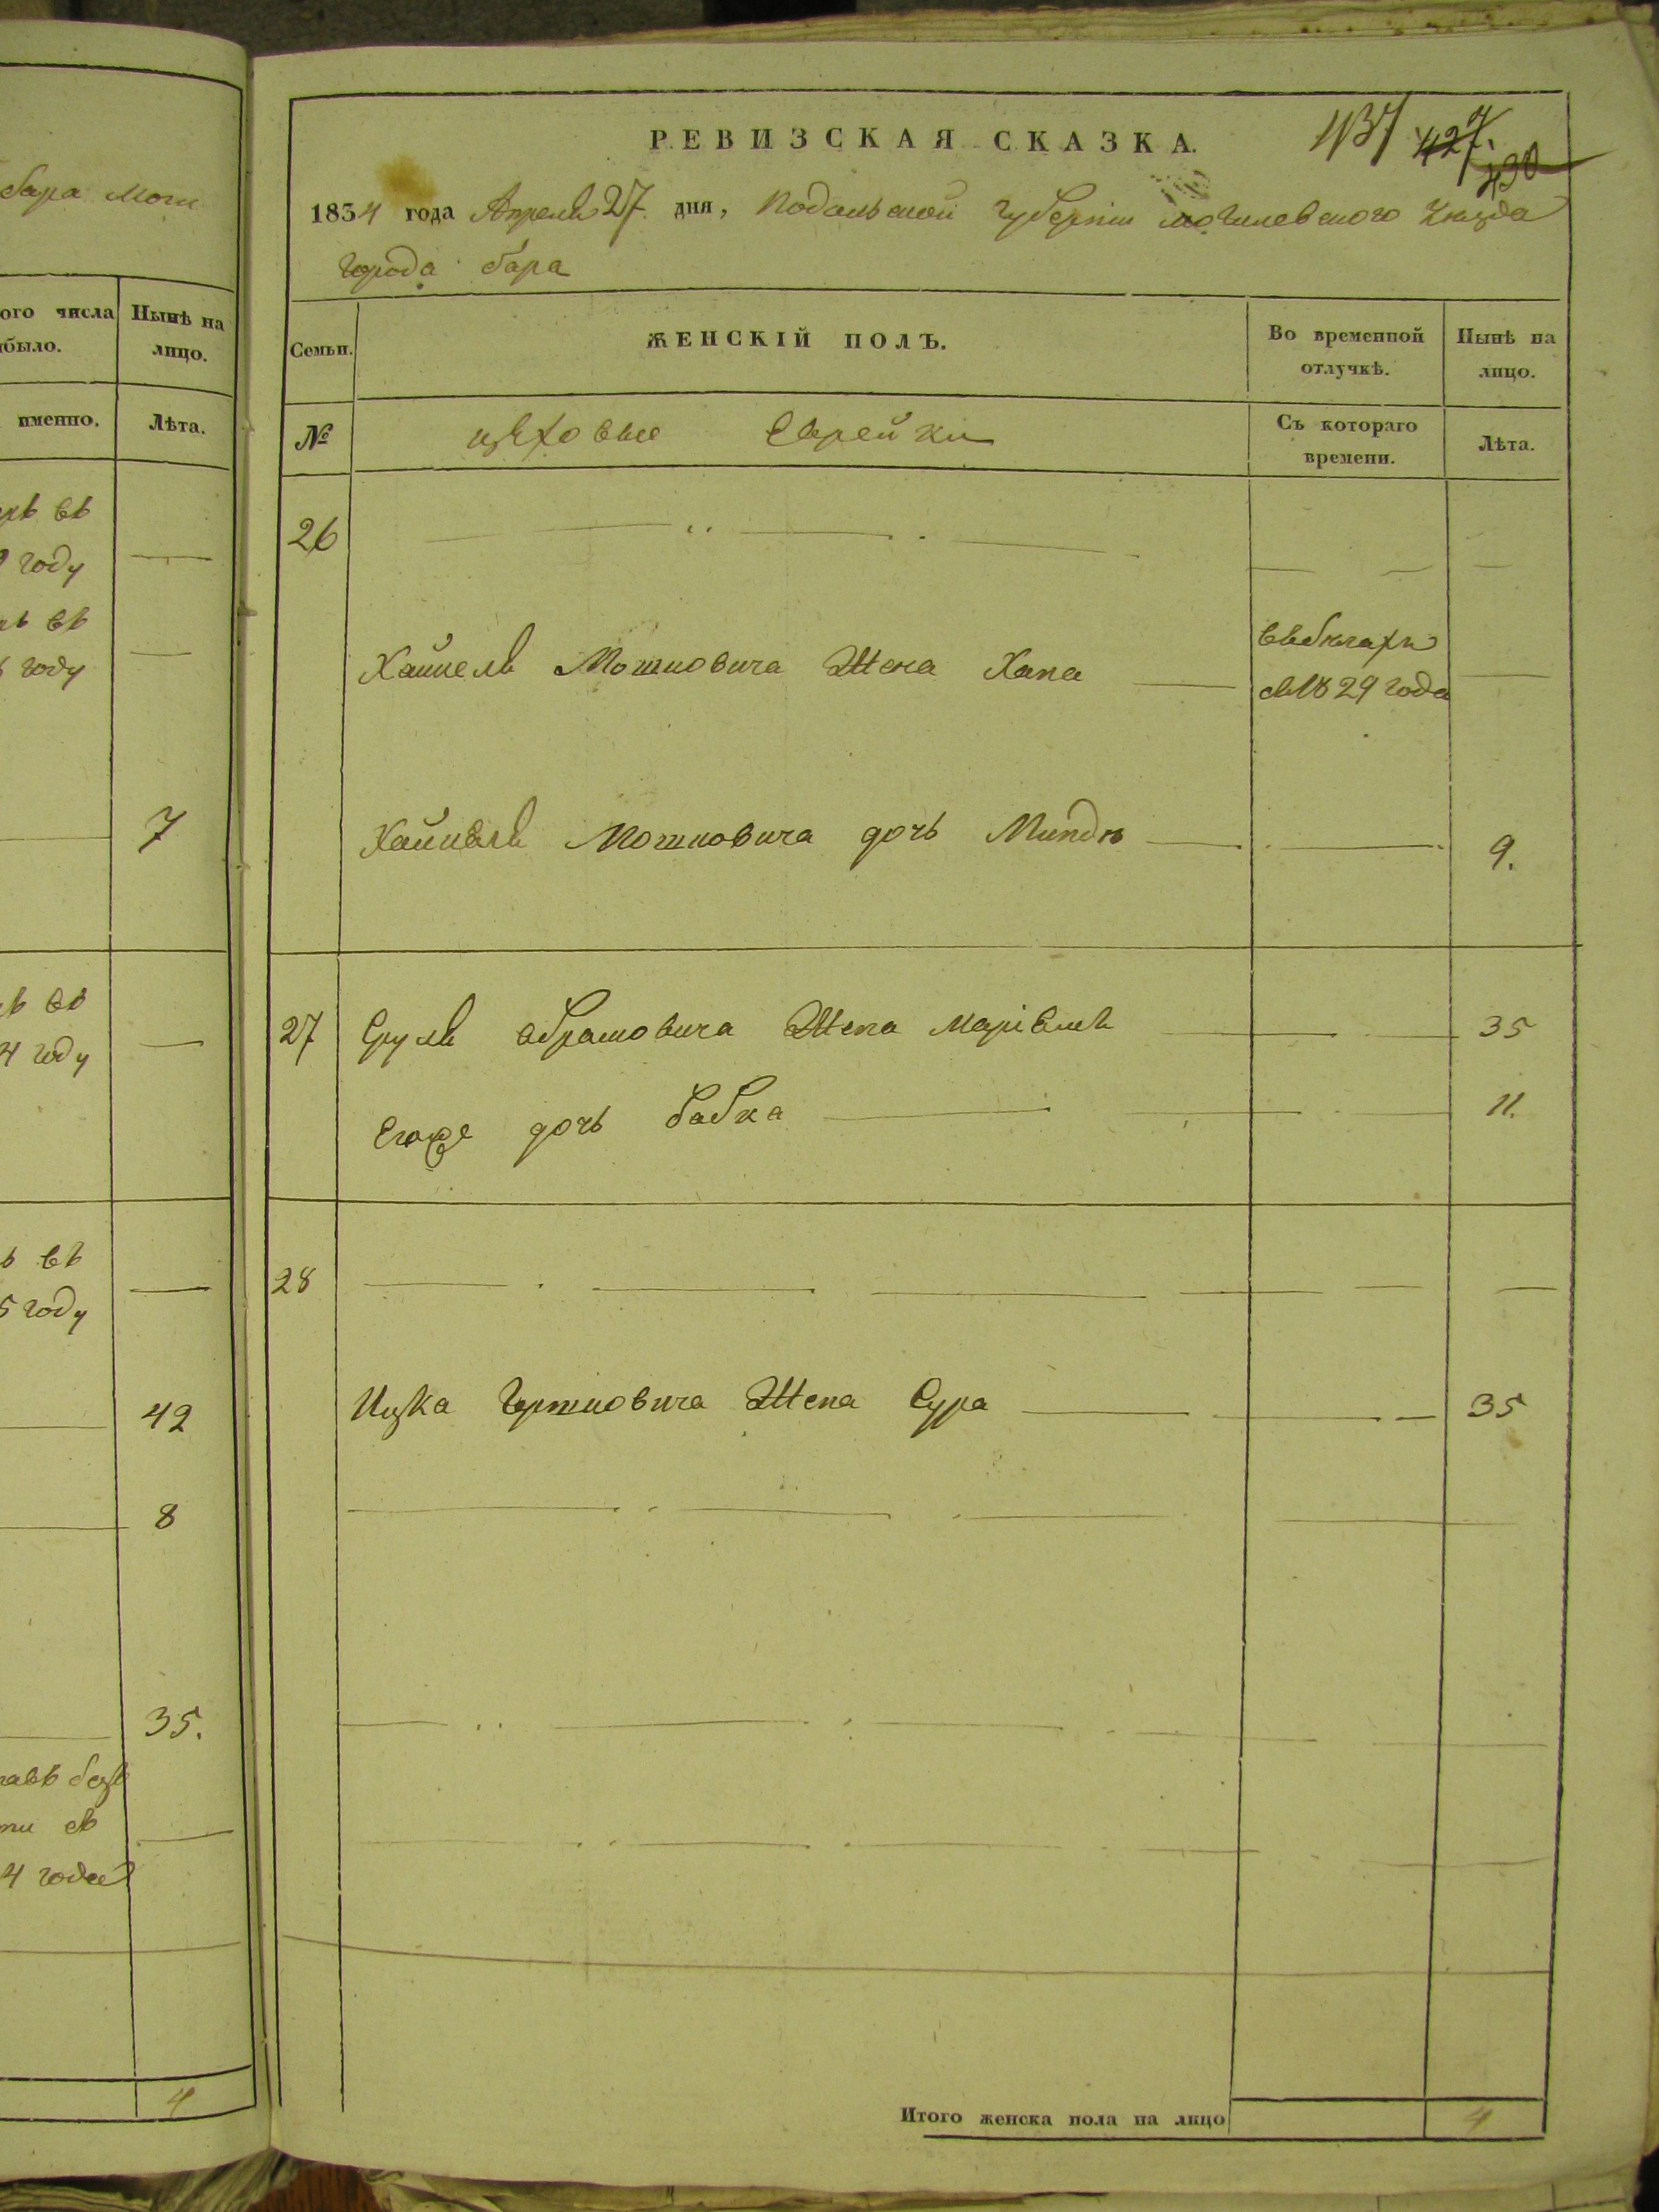 бара Моги
ого числа
было.
Нынѣ на
лицо.
именно.
Лѣта.
въ
году
въ
году
7
въ
4 году
въ
5 году
42
8
35.
безъ
съ
4 года
4
РЕВИЗСКАЯ СКАЗКА.
437 427. 430
1834 года Апреля 27 дня, Подольской губерніи могилевского уѣзда
города бара
Семьи.
ЖЕНСКІЙ ПОЛЪ.
Во временной
отлучкѣ.
Нынѣ на
лицо.
№
цѣховые Еврейки
Съ котораго
времени.
Лѣта.
26
Мошковича Жена Хана
въ бѣгахъ
съ 1829 года
Мошковича дочь Миндя
9.
27 Сруля Абрамовича Жена 35
Егоже дочь бабка 11.
28
Ицка Гершковича Жена Сура 35
Итого женска пола на лицо 4